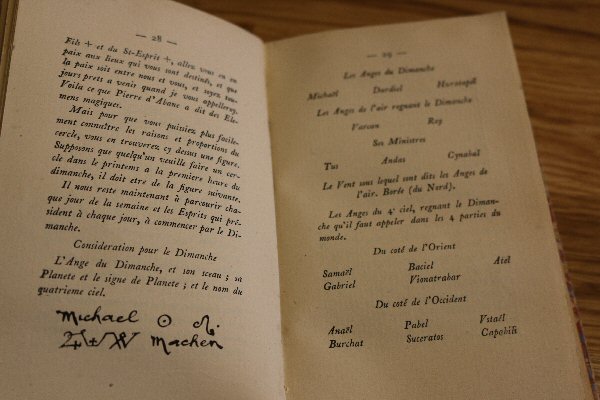 — 28 —
Fils + et du St-Esprit +, allez vous en en
paix aux lieux qui vous sont destinés, et que
la paix soit entre nous et vous, et soyez tou-
jours prets a venir quand je vous appelleray.
Voila ce que Pierre d'Abanc a dit des Ele-
mens magiques.
Mais pour que vous puissiez plus facile-
ment connaître les raisons et proportions du
cercle, vous en trouverez cy dessus une figure.
Supposons que quelqu'un veuille faire un cer-
cle dans le printems a la premiere heure du
dimanche, il doit etre de la figure suivante.
Il nous reste maintenant à parcourir cha-
que jour de la semaine et les Esprits qui pré-
sident à chaque jour, à commencer par le Di-
manche.
Consideration pour le Dimanche
L'Ange du Dimanche, et son sceau ; sa
Planete et le signe de Planete ; et le nom du
quatrieme ciel.
Michael ☉ ♌
Machen
— 29 —
Les Anges du Dimanche
Michaël Dardiel Hurstapël
Les Anges de l'air regnant le Dimanche
Varcan Rey
Ses Ministres
Tus Andas Cynabal
Le Vent sous lequel sont dits les Anges de
l'air. Borée (du Nord).
Les Anges du 4e ciel, regnant le Diman-
che qu'il faut appeler dans les 4 parties du
monde.
Du coté de l'Orient
Samaël Baciel Atel
Gabriel Vionatrabar
Du coté de l'Occident
Anaël Pabel Vstaël
Burchat Suceratos Capabili